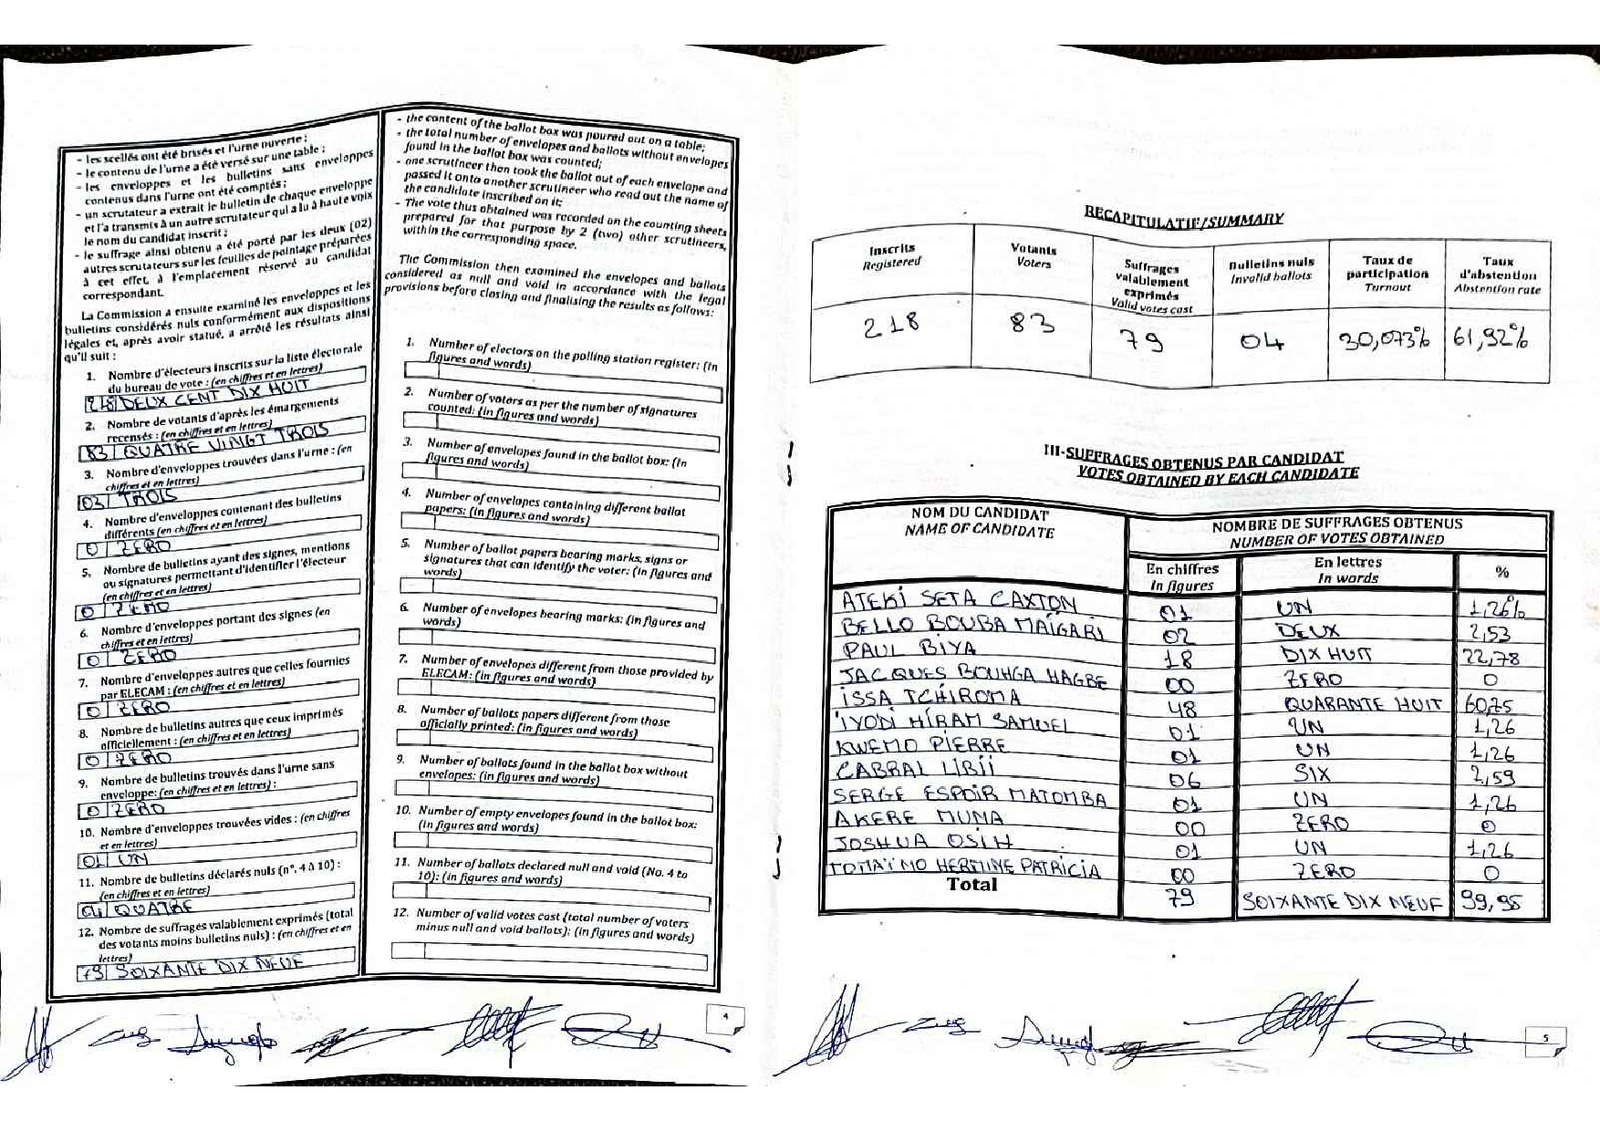 - les scellés ont été brisés et l'urne ouverte ;
- le contenu de l'urne a été versé sur une table ;
- les enveloppes et les bulletins sans enveloppes
contenus dans l'urne ont été comptés ;
- un scrutateur a extrait le bulletin de chaque enveloppe
et l'a transmis à un autre scrutateur qui a lu à haute voix
le nom du candidat inscrit ;
- le suffrage ainsi obtenu a été porté par les deux (02)
autres scrutateurs sur les feuilles de pointage préparées
à cet effet, à l'emplacement réservé au candidat
correspondant.
La Commission a ensuite examiné les enveloppes et les
bulletins considérés nuls conformément aux dispositions
légales et, après avoir statué, a arrêté les résultats ainsi
qu'il suit :
1. Nombre d'électeurs inscrits sur la liste électorale
du bureau de vote : (en chiffres et en lettres)
218 DEUX CENT DIX HUIT
2. Nombre de votants d'après les émargements
recensés : (en chiffres et en lettres)
83 QUATRE VINGT TROIS
3. Nombre d'enveloppes trouvées dans l'urne : (en
chiffres et en lettres)
03 TROIS
4. Nombre d'enveloppes contenant des bulletins
différents (en chiffres et en lettres)
0 ZERO
5. Nombre de bulletins ayant des signes, mentions
ou signatures permettant d'identifier l'électeur
(en chiffres et en lettres)
0 ZERO
6. Nombre d'enveloppes portant des signes (en
chiffres et en lettres)
0 ZERO
7. Nombre d'enveloppes autres que celles fournies
par ELECAM : (en chiffres et en lettres)
0 ZERO
8. Nombre de bulletins autres que ceux imprimés
officiellement : (en chiffres et en lettres)
0 ZERO
9. Nombre de bulletins trouvés dans l'urne sans
enveloppe: (en chiffres et en lettres) :
0 ZERO
10. Nombre d'enveloppes trouvées vides : (en chiffres
et en lettres)
01 UN
11. Nombre de bulletins déclarés nuls (n°. 4 à 10) :
(en chiffres et en lettres)
04 QUATRE
12. Nombre de suffrages valablement exprimés (total
des votants moins bulletins nuls) : (en chiffres et en
lettres)
79 SOIXANTE DIX NEUF
- the content of the ballot box was poured out on a table;
- the total number of envelopes and ballots without envelopes
found in the ballot box was counted;
- one scrutineer then took the ballot out of each envelope and
passed it onto another scrutineer who read out the name of
the candidate inscribed on it;
- The vote thus obtained was recorded on the counting sheets
prepared for that purpose by 2 (two) other scrutineers,
within the corresponding space.
The Commission then examined the envelopes and ballots
considered as null and void in accordance with the legal
provisions before closing and finalising the results as follows:
1. Number of electors on the polling station register: (in
figures and words)
2. Number of voters as per the number of signatures
counted: (in figures and words)
3. Number of envelopes found in the ballot box: (in
figures and words)
4. Number of envelopes containing different ballot
papers: (in figures and words)
5. Number of ballot papers bearing marks, signs or
signatures that can identify the voter: (in figures and
words)
6. Number of envelopes bearing marks: (in figures and
words)
7. Number of envelopes different from those provided by
ELECAM: (in figures and words)
8. Number of ballots papers different from those
officially printed: (in figures and words)
9. Number of ballots found in the ballot box without
envelopes: (in figures and words)
10. Number of empty envelopes found in the ballot box:
(in figures and words)
11. Number of ballots declared null and void (No. 4 to
10): (in figures and words)
12. Number of valid votes cast (total number of voters
minus null and void ballots): (in figures and words)
4
RECAPITULATIF/SUMMARY
Inscrits Registered | Votants Voters | Suffrages valablement exprimés Valid votes cast | Bulletins nuls Invalid ballots | Taux de participation Turnout | Taux d'abstention Abstention rate
218 | 83 | 79 | 04 | 30,073% | 61,92%
III-SUFFRAGES OBTENUS PAR CANDIDAT
VOTES OBTAINED BY EACH CANDIDATE
NOM DU CANDIDAT NAME OF CANDIDATE | NOMBRE DE SUFFRAGES OBTENUS NUMBER OF VOTES OBTAINED
En chiffres In figures | En lettres In words | %
ATEKI SETA CAXTON | 01 | UN | 1,26%
BELLO BOUBA MAIGARI | 02 | DEUX | 2,53
PAUL BIYA | 18 | DIX HUIT | 22,78
JACQUES BOUHGA HAGBE | 00 | ZERO | 0
ISSA TCHIROMA | 48 | QUARANTE HUIT | 60,75
IYODI HIRAM SAMUEL | 01 | UN | 1,26
KWEMO PIERRE | 01 | UN | 1,26
CABRAL LIBII | 06 | SIX | 7,59
SERGE ESPOIR MATOMBA | 01 | UN | 1,26
AKERE MUNA | 00 | ZERO | 0
JOSHUA OSIH | 01 | UN | 1,26
TOMAÏNO HERMINE PATRICIA | 00 | ZERO | 0
Total | 79 | SOIXANTE DIX NEUF | 99,95
5